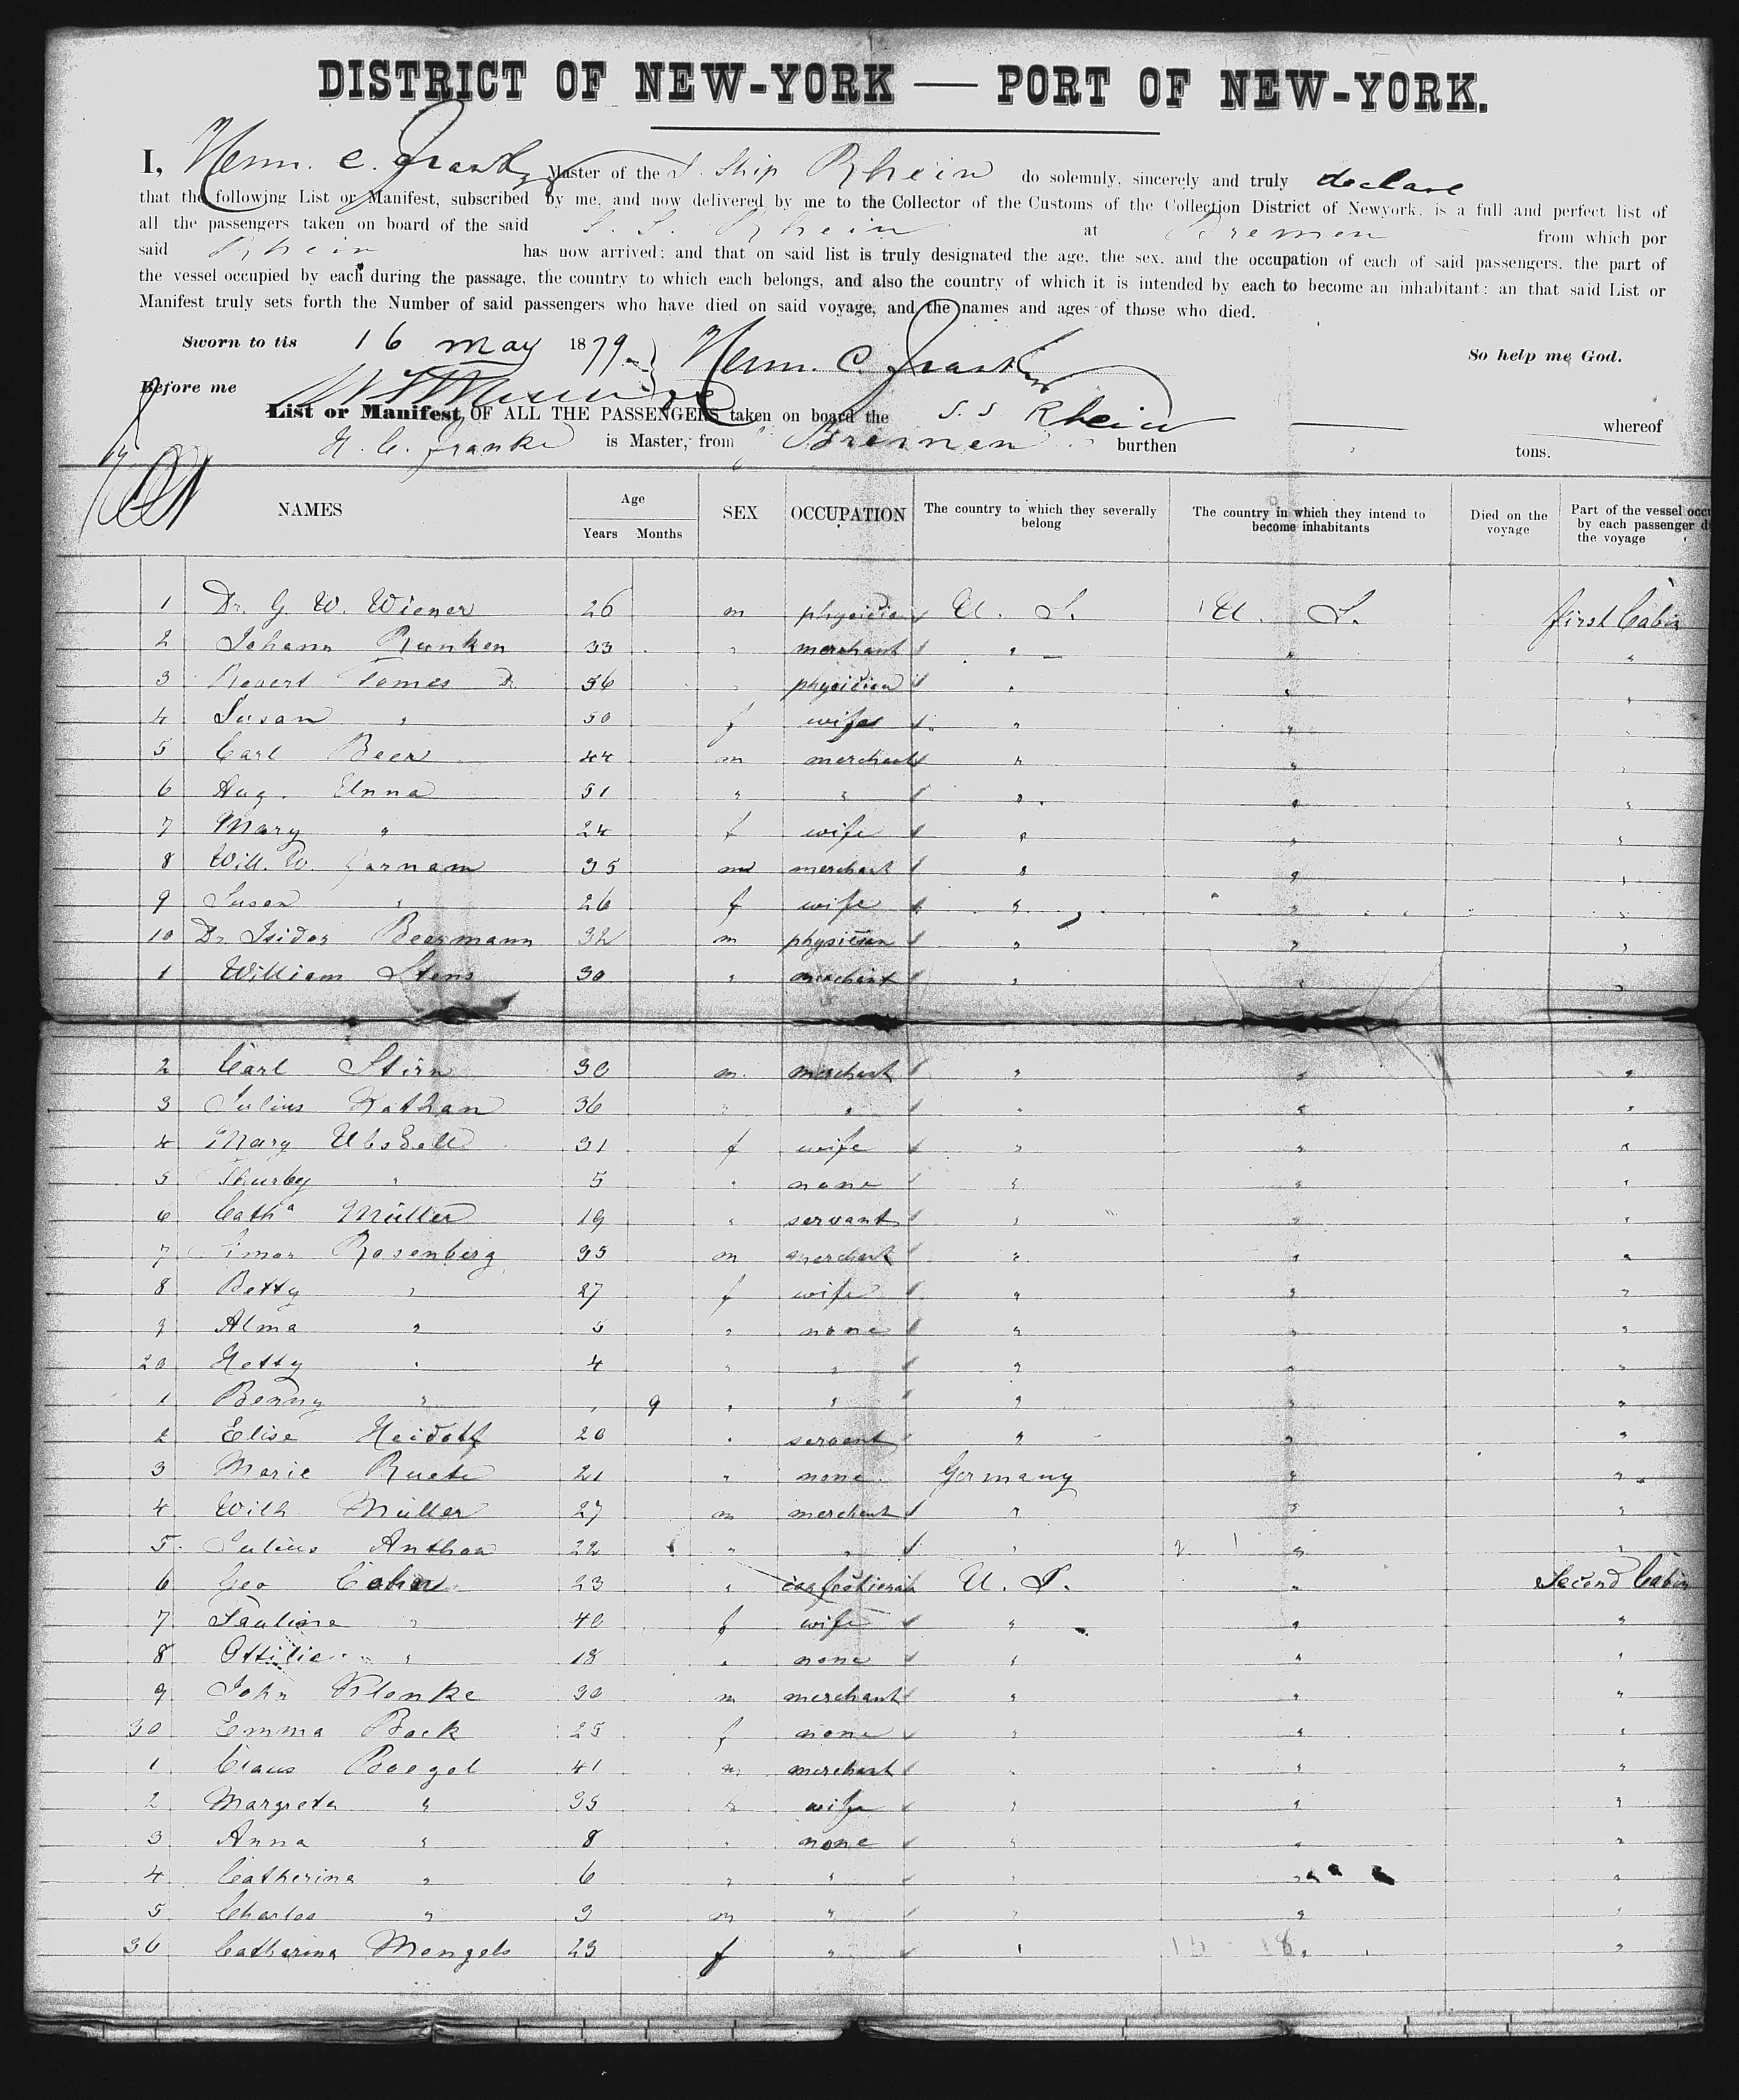 DISTRICT OF NEW-YORK — PORT OF NEW-YORK.
I, Herm. C. Franke Master of the S. Ship Rhein do solemnly, sincerely and truly declare
that the following List or Manifest, subscribed by me, and now delivered by me to the Collector of the Customs of the Collection District of Newyork, is a full and perfect list of
all the passengers taken on board of the said S. S. Rhein at Bremen from which por
said Rhein has now arrived; and that on said list is truly designated the age, the sex, and the occupation of each of said passengers, the part of
the vessel occupied by each during the passage, the country to which each belongs, and also the country of which it is intended by each to become an inhabitant: an that said List or
Manifest truly sets forth the Number of said passengers who have died on said voyage, and the names and ages of those who died.
Sworn to tis 16 may 1879 Herm. C. Franke So help me God.
Before me
List or Manifest OF ALL THE PASSENGERS taken on board the S. S Rhein whereof
H. C. Franke is Master, from Bremen burthen tons.
NAMES Age Years Months SEX OCCUPATION The country to which they severally belong The country in which they intend to become inhabitants Died on the voyage Part of the vessel occu by each passenger d the voyage
1 Dr. G. W. Wiener 26 m physician U. S. U. S. first Cabin
2 Johann Runken 33 " merchant " " "
3 Robert Tomes Dr 56 " physician " " "
4 Susan " 50 f wife " " "
5 Carl Beer 44 m merchant " " "
6 Aug. Unna 51 " " " " "
7 Mary " 24 f wife " " "
8 Will. W. Farnam 35 m merchant " " "
9 Susan " 26 f wife " " "
10 Dr. Isidor Beermann 32 m physician " " "
1 William Stens 30 " merchant " " "
2 Carl Stirn 30 m merchant " " "
3 Julius Nathan 36 " " " " "
4 Mary Ubsdell 31 f wife " " "
5 Thurby " 5 " none " " "
6 Cath a Müller 19 " servant " " "
7 Simon Rosenberg 35 m merchant " " "
8 Betty " 27 f wife " " "
9 Alma " 5 " none " " "
20 Hetty " 4 " " " " "
1 Benny " , 9 " " " " "
2 Elise Heidolf 20 " servant " " "
3 Marie Ruete 21 " none Germany " "
4 Wilh Müller 27 m merchant " " "
5 Julius Anthon 22 " " " " "
6 Geo 23 " U. S. " Second Cabin
7 Pauline " 40 f wife " " "
8 Ottilie " 18 " none " " "
9 John Klenke 30 m merchant " " "
30 Emma Bock 25 f none " " "
1 Claus Boegel 41 m merchant " " "
2 Margreta " 35 f wife " " "
3 Anna " 8 " none " " "
4 Catherina " 6 " " " " "
5 Charles " 3 m " " " "
36 Catharina Mengels 23 f " " " "